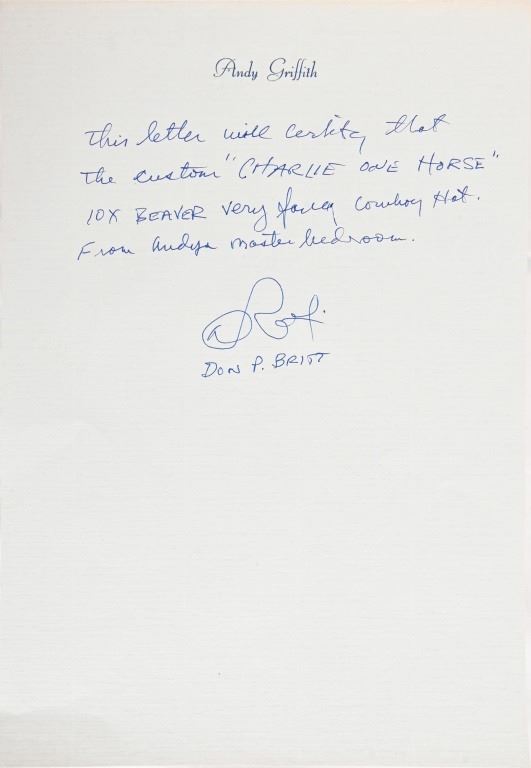 Andy Griffith
This letter will certify that
the custom "CHARLIE ONE HORSE"
10X BEAVER very fancy Cowboy Hat.
From Andys master bedroom.
DON P. BRITT